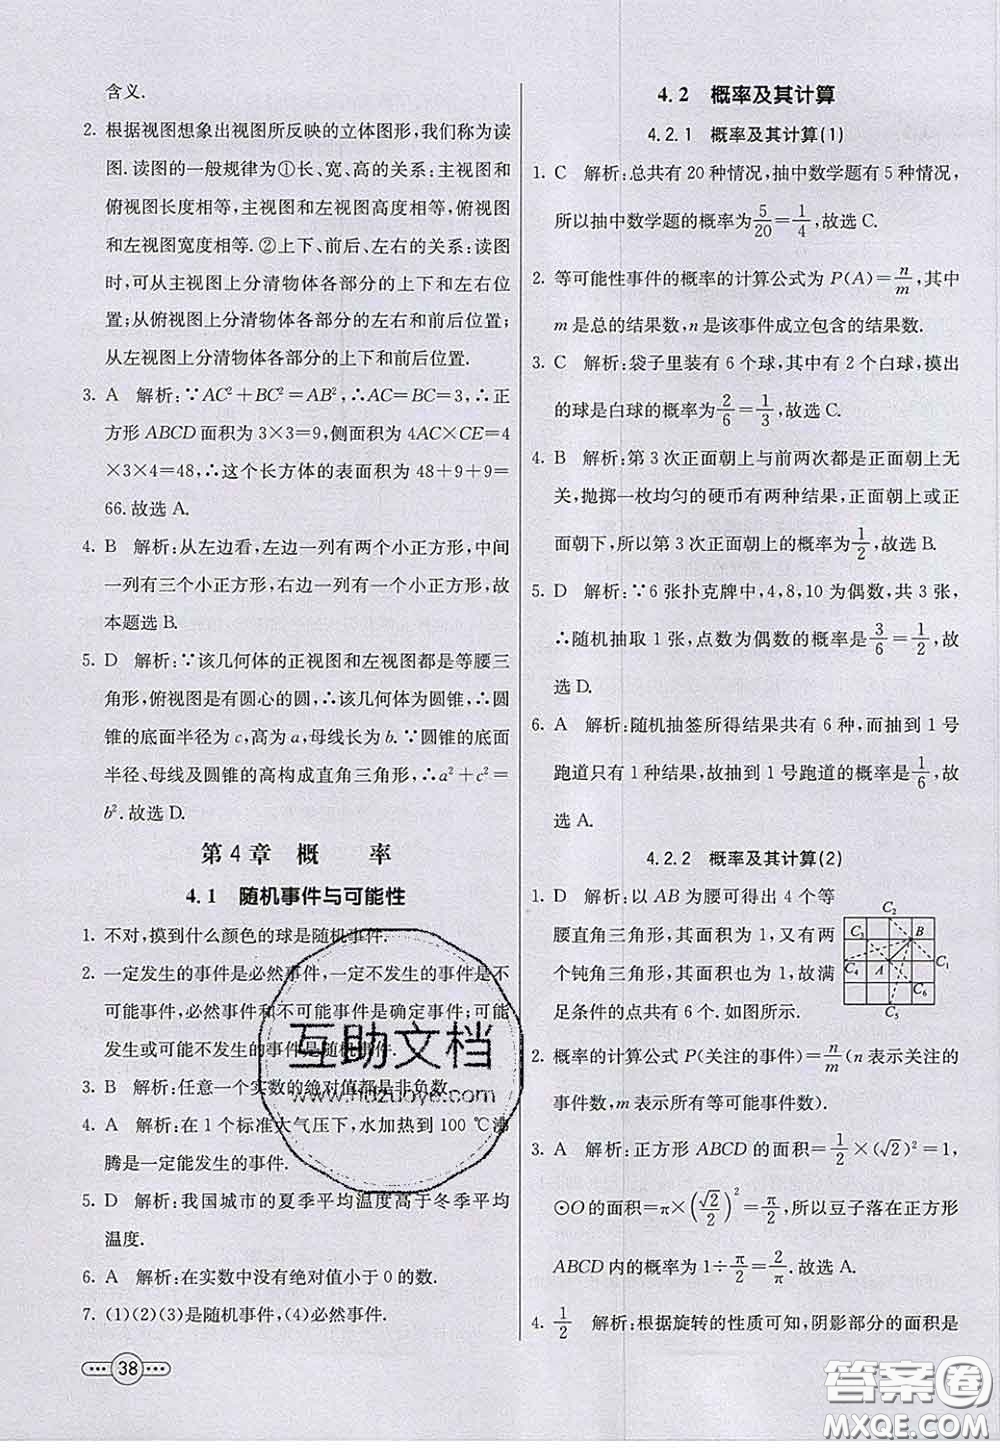 含义.
2. 根据视图想象出视图所反映的立体图形,我们称为读
图.读图的一般规律为①长、宽、高的关系:主视图和
俯视图长度相等,主视图和左视图高度相等,俯视图
和左视图宽度相等.②上下、前后、左右的关系:读图
时,可从主视图上分清物体各部分的上下和左右位
置;从俯视图上分清物体各部分的左右和前后位置;
从左视图上分清物体各部分的上下和前后位置.
3. A 解析:∵AC²+BC²=AB²,∴AC=BC=3,∴正
方形ABCD面积为3×3=9,侧面积为4AC×CE=4
×3×4=48,∴这个长方体的表面积为48+9+9=
66.故选A.
4. B 解析:从左边看,左边一列有两个小正方形,中间
一列有三个小正方形,右边一列有一个小正方形,故
本题选B.
5. D 解析:∵该几何体的正视图和左视图都是等腰三
角形,俯视图是有圆心的圆,∴该几何体为圆锥,∴圆
锥的底面半径为c,高为a,母线长为b.∵圆锥的底面
半径、母线及圆锥的高构成直角三角形,∴a²+c²=
b².故选D.
第4章 概 率
4.1 随机事件与可能性
1. 不对,摸到什么颜色的球是随机事件.
2. 一定发生的事件是必然事件,一定不发生的事件是不
可能事件,必然事件和不可能事件是确定事件;可能
发生或可能不发生的事件是随机事件.
3. B 解析:任意一个实数的绝对值都是非负数.
4. A 解析:在1个标准大气压下,水加热到100 ℃沸
腾是一定能发生的事件.
5. D 解析:我国城市的夏季平均温度高于冬季平均
温度.
6. A 解析:在实数中没有绝对值小于0的数.
7. (1)(2)(3)是随机事件,(4)必然事件.
38
4.2 概率及其计算
4.2.1 概率及其计算(1)
1. C 解析:总共有20种情况,抽中数学题有5种情况,
所以抽中数学题的概率为5/20=1/4,故选C.
2. 等可能性事件的概率的计算公式为P(A)=n/m,其中
m是总的结果数,n是该事件成立包含的结果数.
3. C 解析:袋子里装有6个球,其中有2个白球,摸出
的球是白球的概率为2/6=1/3,故选C.
4. B 解析:第3次正面朝上与前两次都是正面朝上无
关,抛掷一枚均匀的硬币有两种结果,正面朝上或正
面朝下,所以第3次正面朝上的概率为1/2,故选B.
5. D 解析:∵6张扑克牌中,4,8,10为偶数,共3张,
∴随机抽取1张,点数为偶数的概率是3/6=1/2,故
选D.
6. A 解析:随机抽签所得结果共有6种,而抽到1号
跑道只有1种结果,故抽到1号跑道的概率是1/6,故
选A.
4.2.2 概率及其计算(2)
1. D 解析:以AB为腰可得出4个等
腰直角三角形,其面积为1,又有两
个钝角三角形,其面积也为1,故满
足条件的点共有6个.如图所示.
C₂
C₃
B
C₄
A
C₁
C₆
C₅
2. 概率的计算公式P(关注的事件)=n/m(n表示关注的
事件数,m表示所有等可能事件数).
3. A 解析:正方形ABCD的面积=1/2×(√2)²=1,
⊙O的面积=π×(√2/2)²=π/2,所以豆子落在正方形
ABCD内的概率为1÷π/2=2/π.故选A.
4. 1/2 解析:根据旋转的性质可知,阴影部分的面积是
互助文档
www.hdzuoye.com
答案圈
MXQE.COM